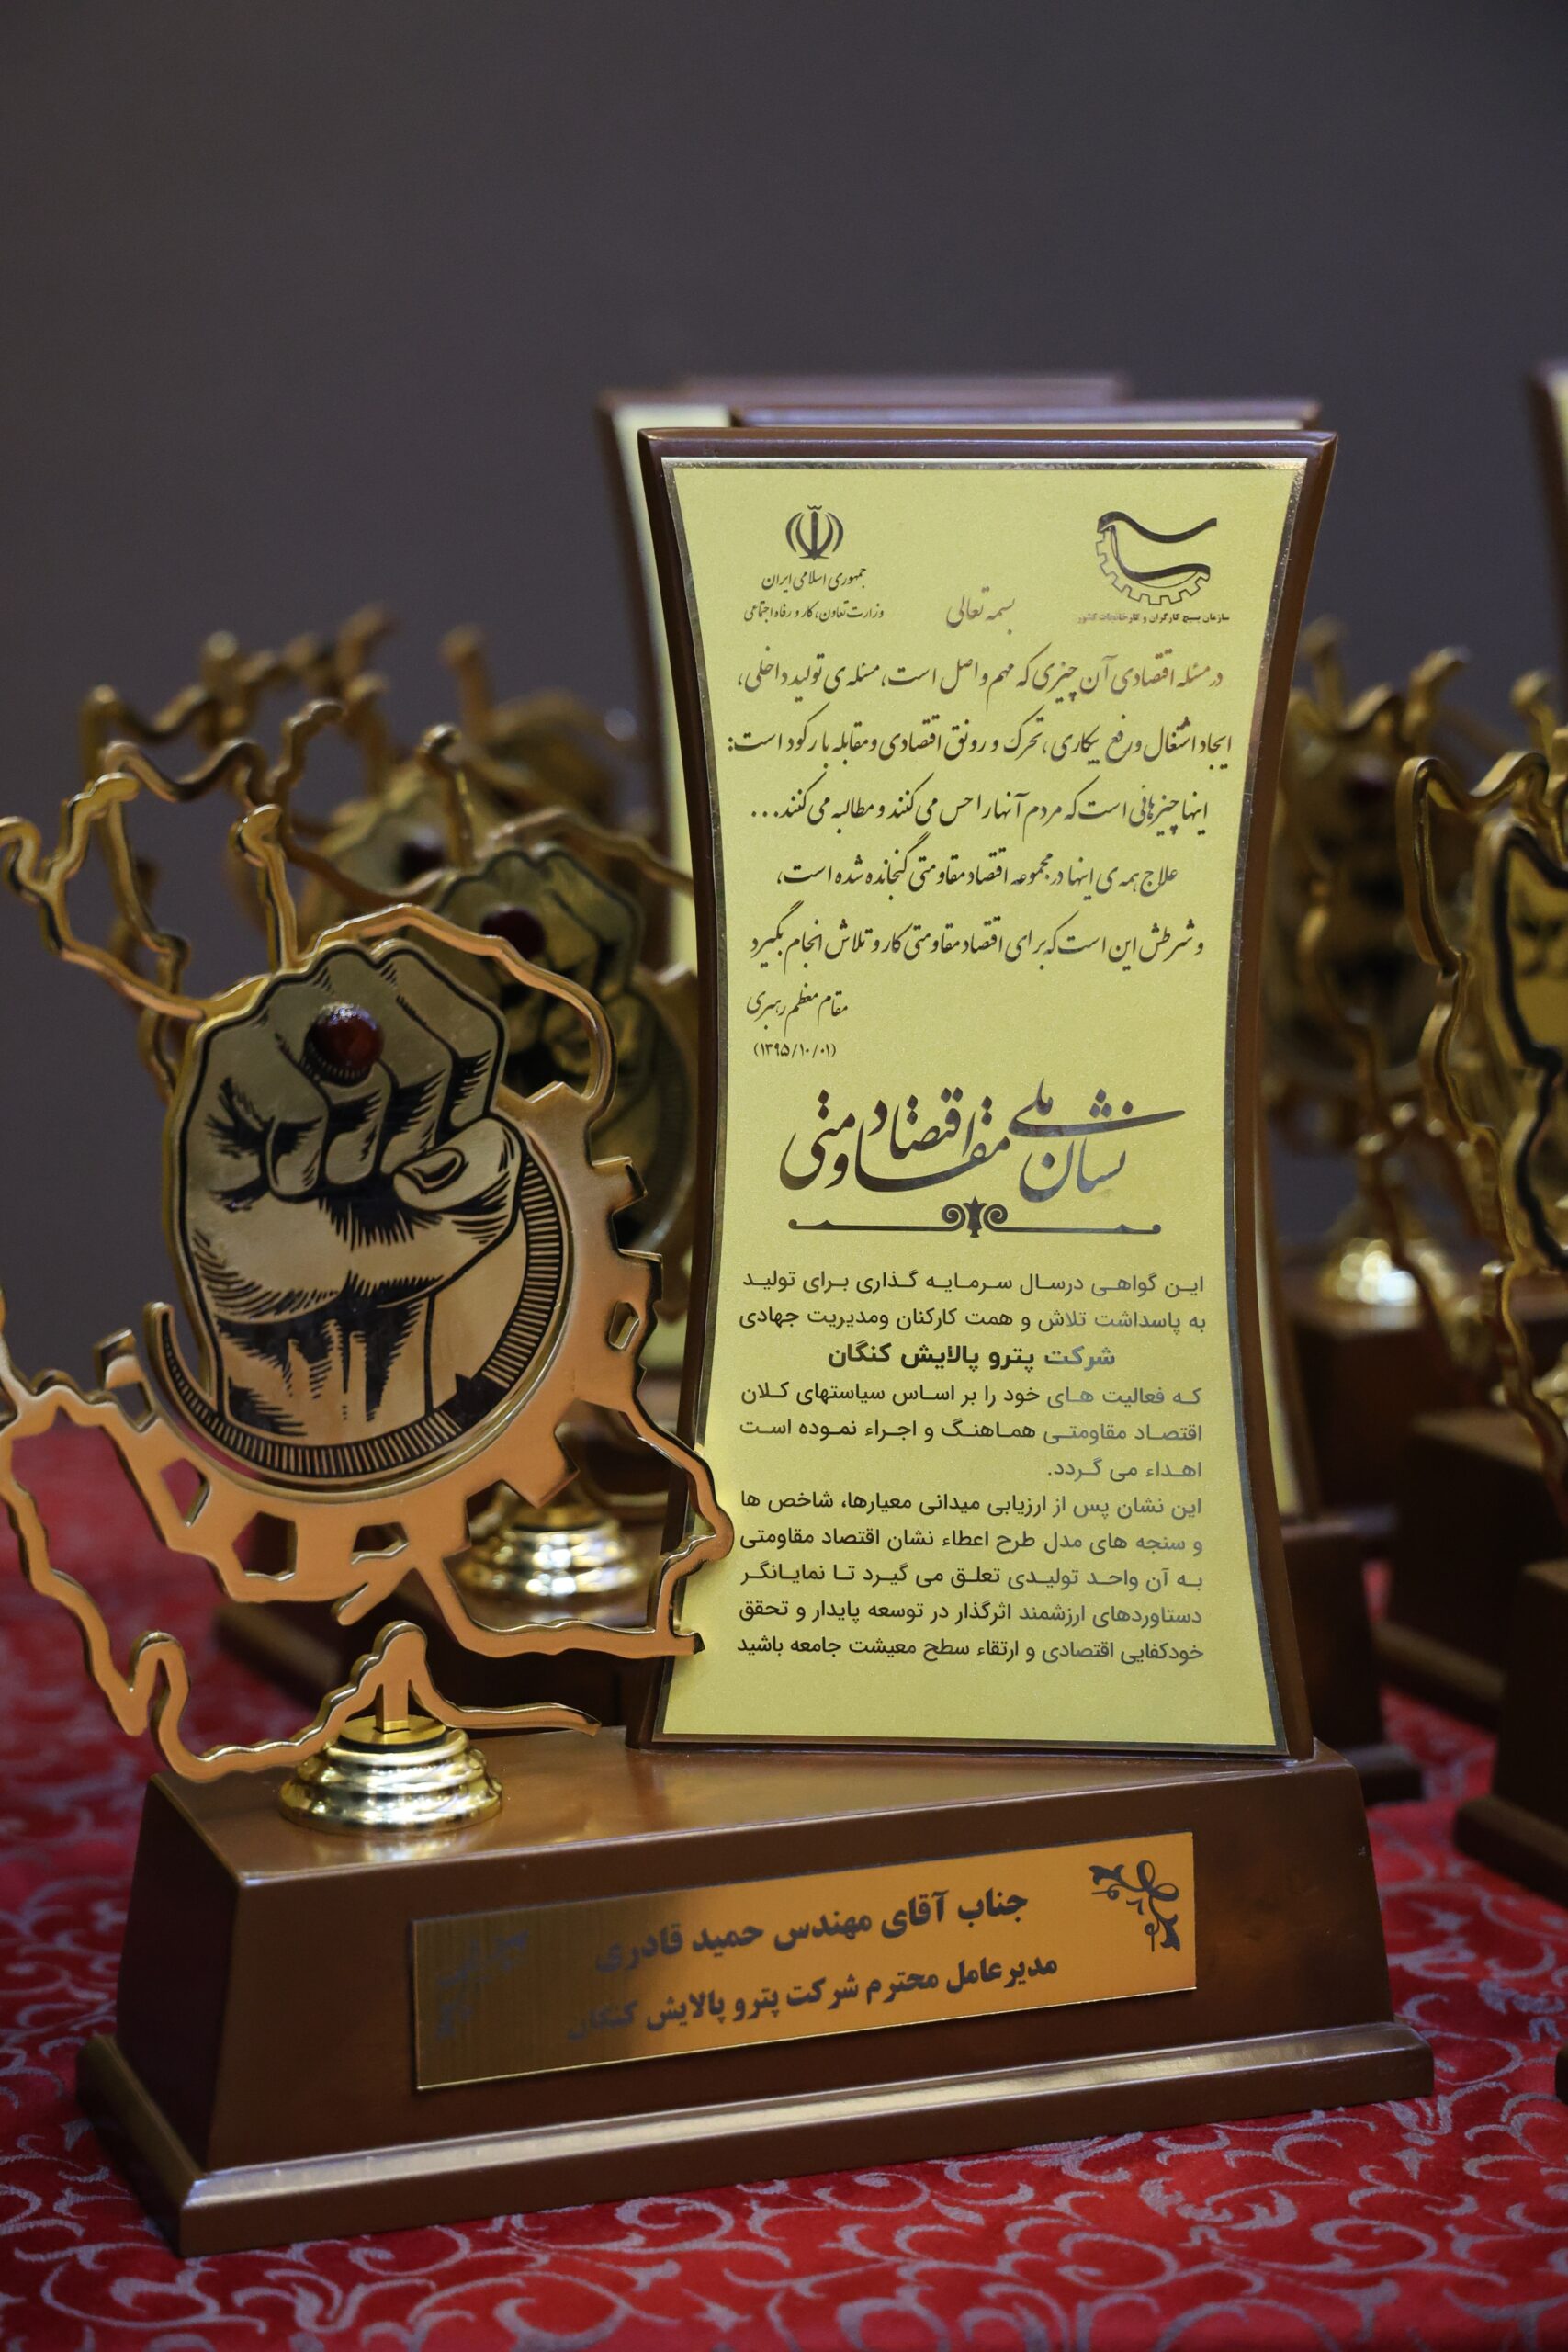 سازمان بسیج کارگران و کارخانجات کشور
جمهوری اسلامی ایران
وزارت تعاون، کار و رفاه اجتماعی
بسمه تعالی
در مسئله اقتصادی آن چیزی که مهم و اصل است، مسئله‌ی تولید داخلی،
ایجاد اشتغال و رفع بیکاری، تحرک و رونق اقتصادی و مقابله با رکود است:
اینها چیزهائی است که مردم آنها را حس می کنند و مطالبه می کنند...
علاج همه ی اینها در مجموعه اقتصاد مقاومتی گنجانده شده است،
و شرطش این است که برای اقتصاد مقاومتی کار و تلاش انجام بگیرد
مقام معظم رهبری
(۱۳۹۵/۱۰/۰۱)
نشان ملی اقتصاد مقاومتی
این گواهی درسال سرمایه گذاری برای تولید
به پاسداشت تلاش و همت کارکنان ومدیریت جهادی
شرکت پترو پالایش کنگان
که فعالیت های خود را بر اساس سیاستهای کلان
اقتصاد مقاومتی هماهنگ و اجراء نموده است
اهداء می گردد.
این نشان پس از ارزیابی میدانی معیارها، شاخص ها
و سنجه های مدل طرح اعطاء نشان اقتصاد مقاومتی
به آن واحد تولیدی تعلق می گیرد تا نمایانگر
دستاوردهای ارزشمند اثرگذار در توسعه پایدار و تحقق
خودکفایی اقتصادی و ارتقاء سطح معیشت جامعه باشید
جناب آقای مهندس حمید قادری
مدیرعامل محترم شرکت پترو پالایش کنگان